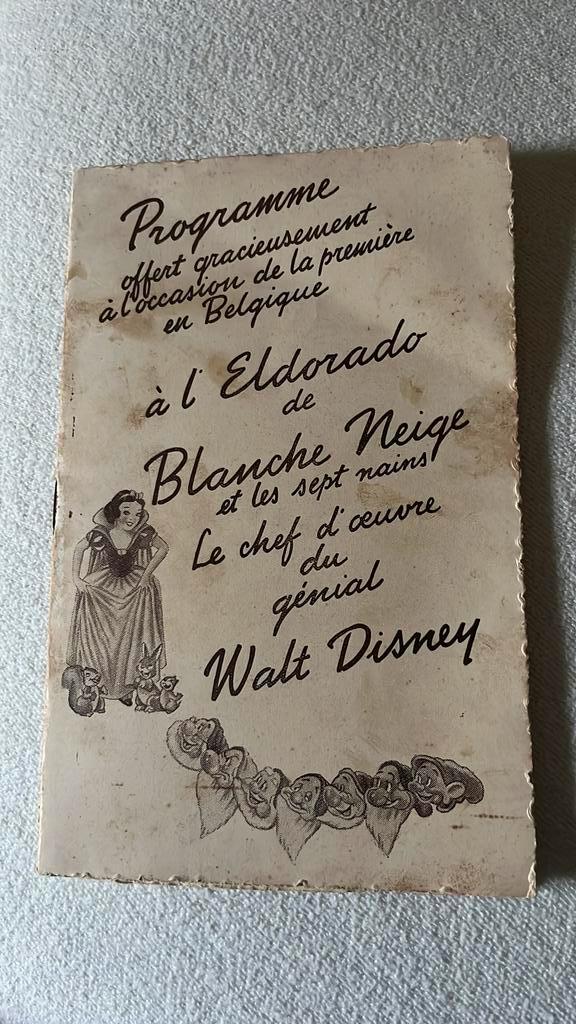 Programme
offert gracieusement
à l'occasion de la première
en Belgique
à l'Eldorado
de
Blanche Neige
et les sept nains
Le chef d'œuvre
du
génial
Walt Disney